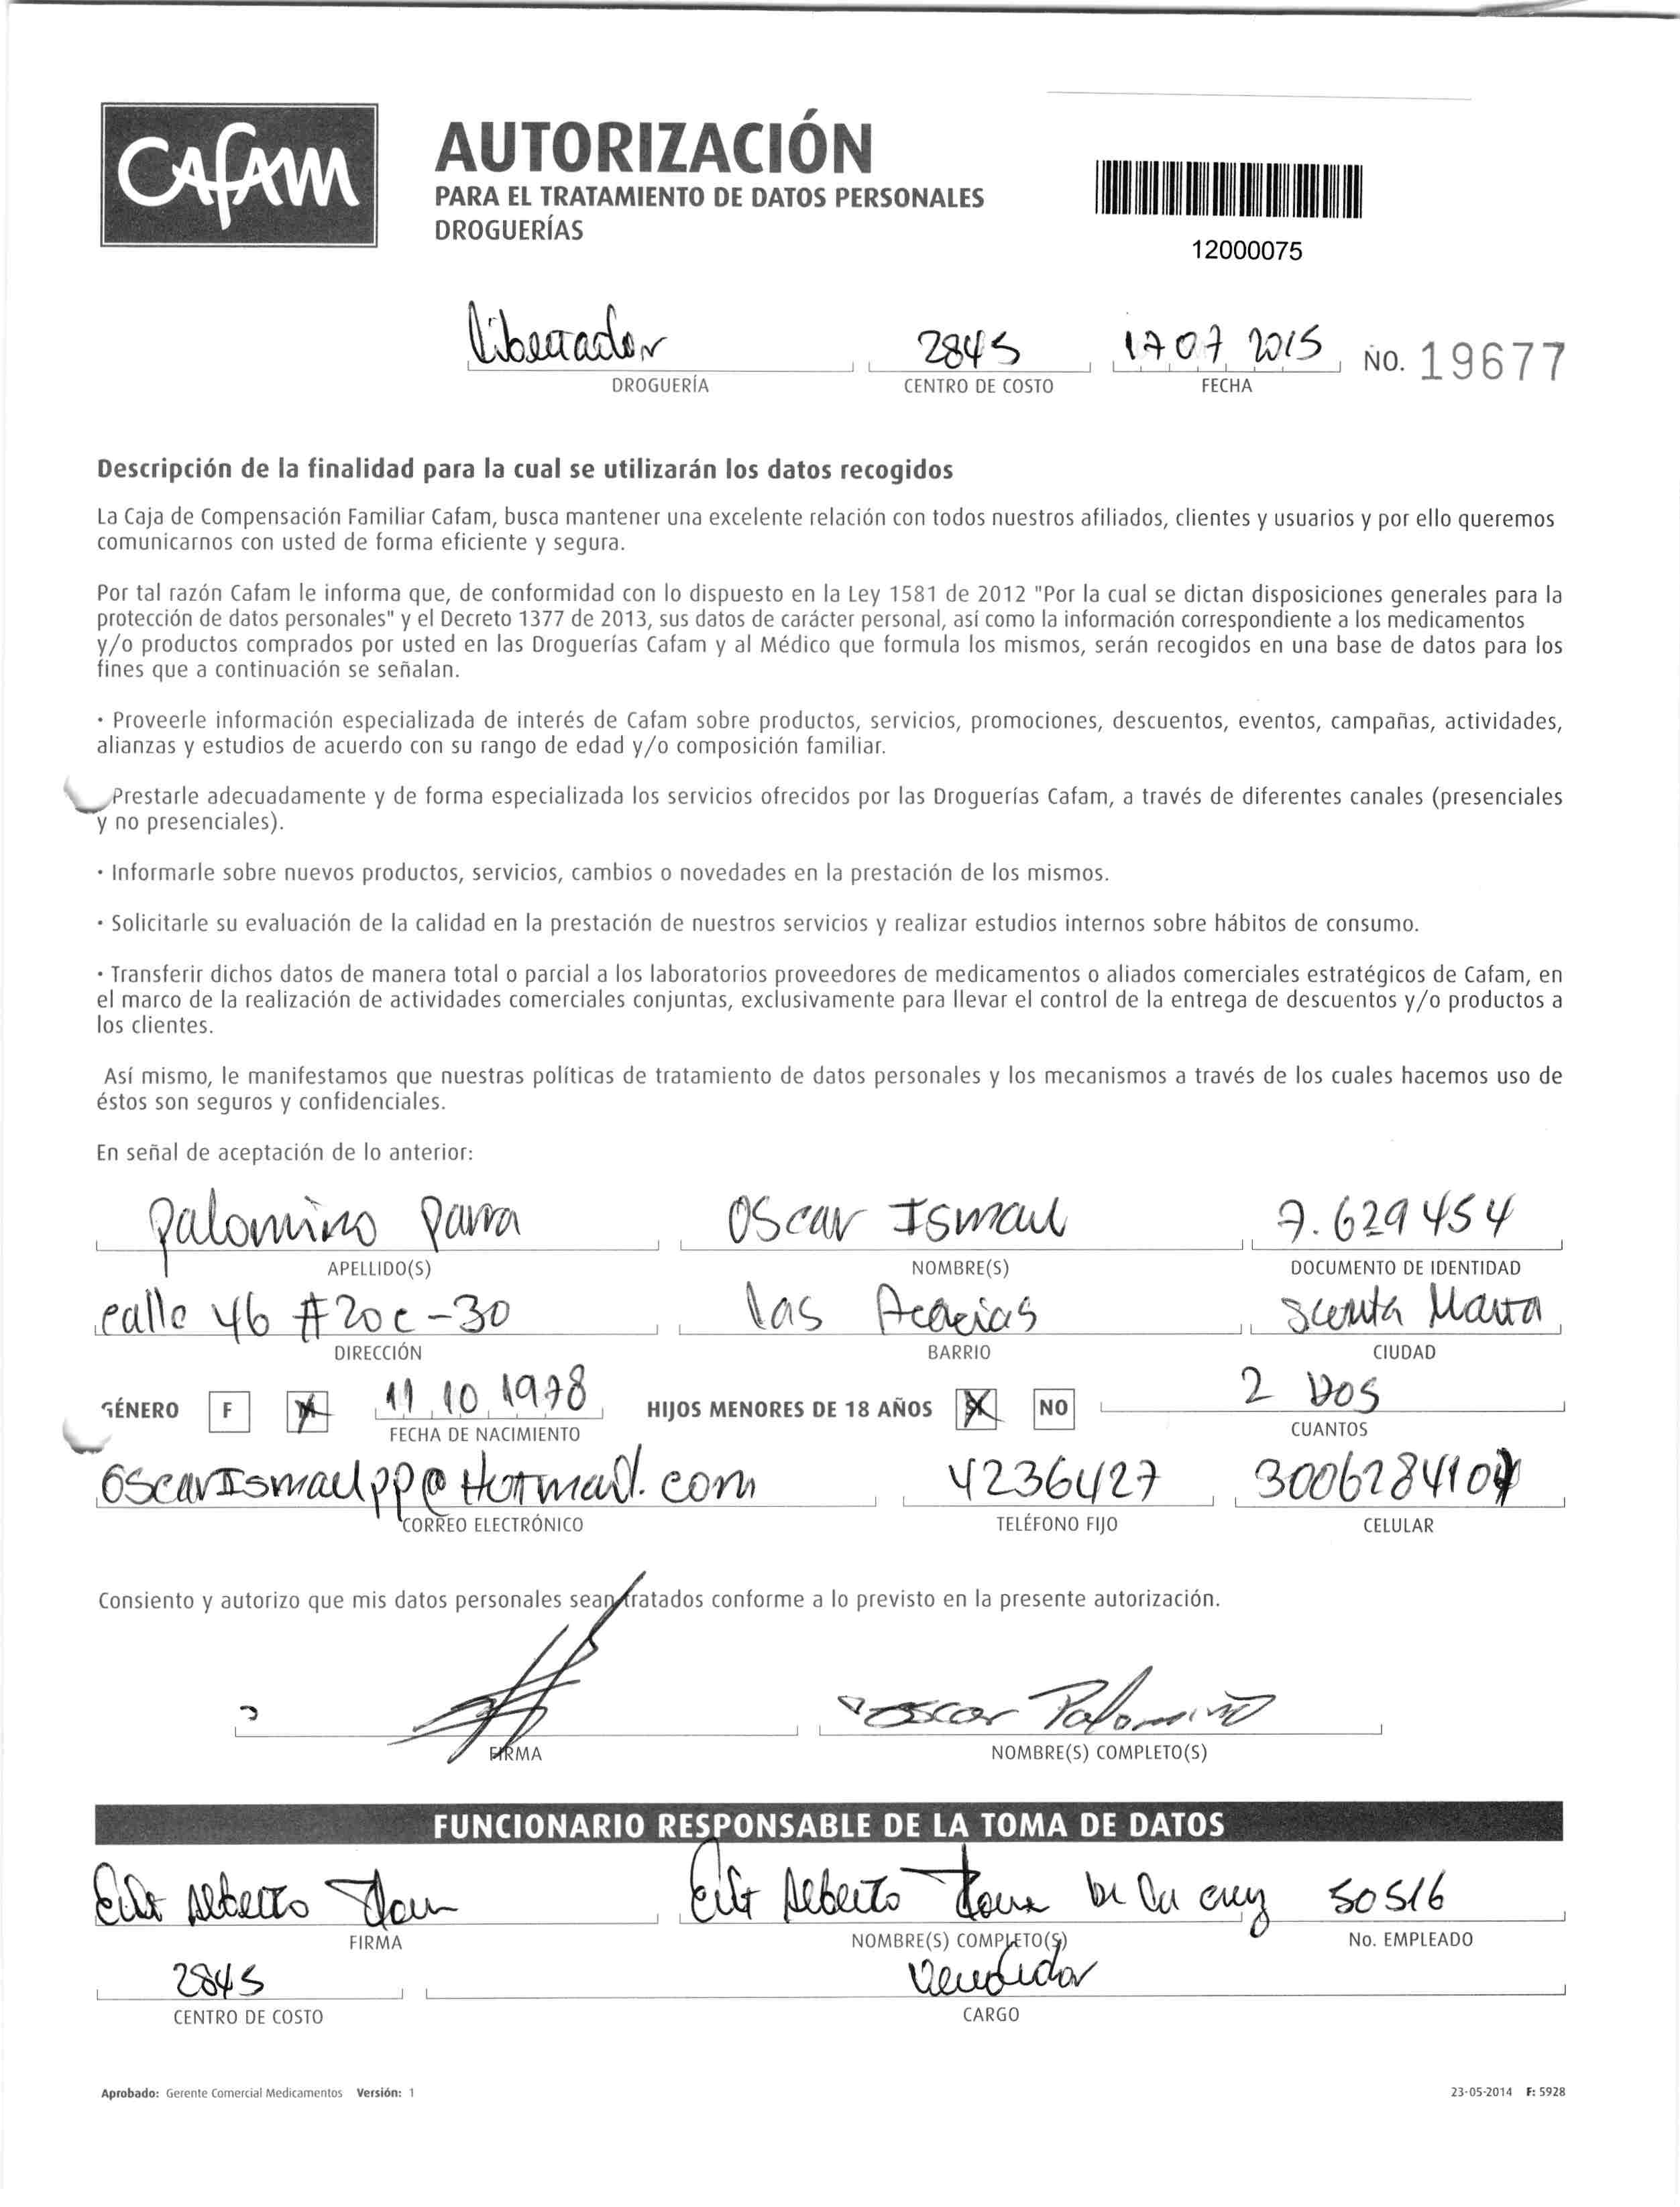 CAFAM
AUTORIZACIÓN
PARA EL TRATAMIENTO DE DATOS PERSONALES
DROGUERÍAS
12000075
Libertador 2845 17 07 2015 NO. 19677
DROGUERÍA CENTRO DE COSTO FECHA
Descripción de la finalidad para la cual se utilizarán los datos recogidos
La Caja de Compensación Familiar Cafam, busca mantener una excelente relación con todos nuestros afiliados, clientes y usuarios y por ello queremos
comunicarnos con usted de forma eficiente y segura.
Por tal razón Cafam le informa que, de conformidad con lo dispuesto en la Ley 1581 de 2012 "Por la cual se dictan disposiciones generales para la
protección de datos personales" y el Decreto 1377 de 2013, sus datos de carácter personal, así como la información correspondiente a los medicamentos
y/o productos comprados por usted en las Droguerías Cafam y al Médico que formula los mismos, serán recogidos en una base de datos para los
fines que a continuación se señalan.
· Proveerle información especializada de interés de Cafam sobre productos, servicios, promociones, descuentos, eventos, campañas, actividades,
alianzas y estudios de acuerdo con su rango de edad y/o composición familiar.
Prestarle adecuadamente y de forma especializada los servicios ofrecidos por las Droguerías Cafam, a través de diferentes canales (presenciales
y no presenciales).
· Informarle sobre nuevos productos, servicios, cambios o novedades en la prestación de los mismos.
· Solicitarle su evaluación de la calidad en la prestación de nuestros servicios y realizar estudios internos sobre hábitos de consumo.
· Transferir dichos datos de manera total o parcial a los laboratorios proveedores de medicamentos o aliados comerciales estratégicos de Cafam, en
el marco de la realización de actividades comerciales conjuntas, exclusivamente para llevar el control de la entrega de descuentos y/o productos a
los clientes.
Así mismo, le manifestamos que nuestras políticas de tratamiento de datos personales y los mecanismos a través de los cuales hacemos uso de
éstos son seguros y confidenciales.
En señal de aceptación de lo anterior:
Palomino Parra Oscar Ismael 7.629454
APELLIDO(S) NOMBRE(S) DOCUMENTO DE IDENTIDAD
calle 46 #20c-30 las Acacias Santa Marta
DIRECCIÓN BARRIO CIUDAD
GÉNERO F 11 10 1978 HIJOS MENORES DE 18 AÑOS NO 2 Dos
FECHA DE NACIMIENTO CUANTOS
OscarIsmaelpp@Hotmail.com 4236427 300628410
CORREO ELECTRÓNICO TELÉFONO FIJO CELULAR
Consiento y autorizo que mis datos personales sean tratados conforme a lo previsto en la presente autorización.
Oscar Palomino
FIRMA NOMBRE(S) COMPLETO(S)
FUNCIONARIO RESPONSABLE DE LA TOMA DE DATOS
Alberto Alberto De la cruz 50516
FIRMA NOMBRE(S) COMPLETO(S) No. EMPLEADO
2845 Vendedor
CENTRO DE COSTO CARGO
Aprobado: Gerente Comercial Medicamentos Versión: 1 23-05-2014 F: 5928